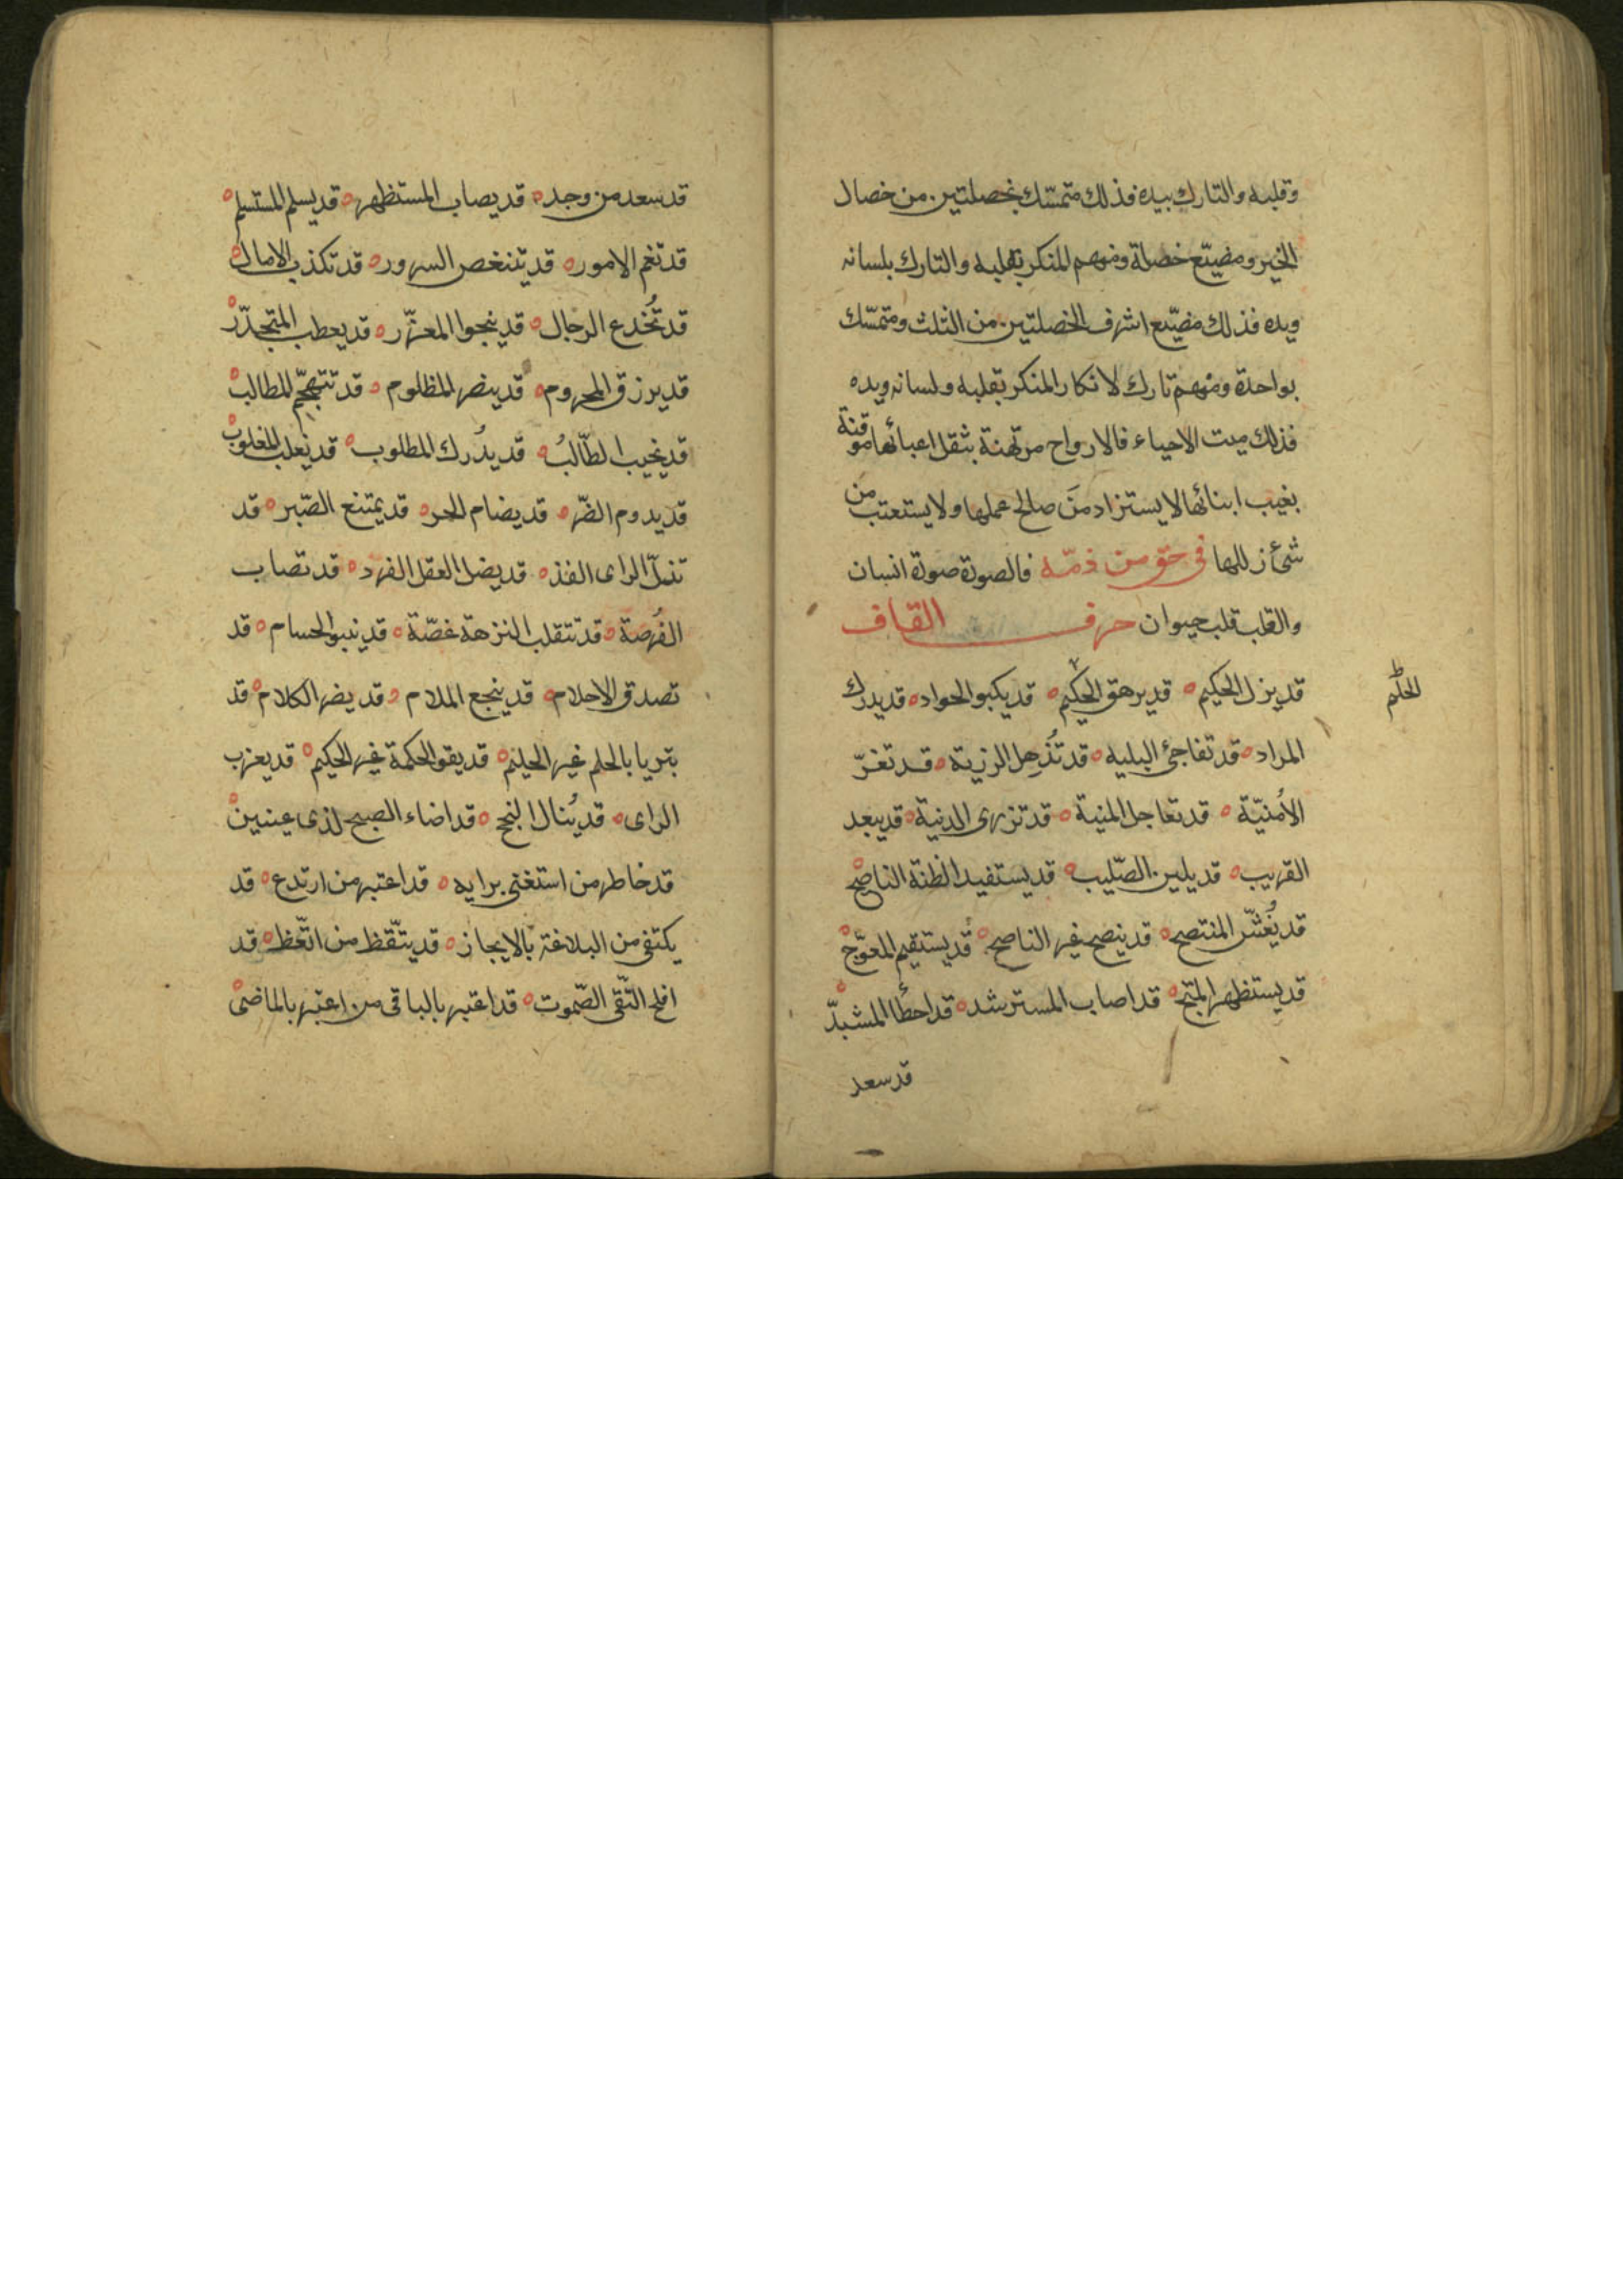 وقلبه والتارك بيده فذلك متمسّك بخصلتين من خصال
الخير ومضيّع خصلة ومنهم المنكر بقلبه والتارك بلسانه
ويده فذلك مضيّع اشرف الخصلتين من الثلث ومتمسّك
بواحدة ومنهم تارك لانكار المنكر بقلبه ولسانه ويده
فذلك ميت الاحياء فالارواح مرتهنة بثقل اعبائها موقنة
بغيب ابنائها لا يستزاد من صالح عملها ولا يستعتب من
شئ زللها في حق من ذمّه فالصورة صورة انسان
والقلب قلب حيوان حرف القاف
قد يزل الحكيم قد يرهق الحكيم قد يكبو الجواد قد يدرك
الحلم
المراد قد تفاجئ البليه قد تذهل الرزية قد تغرّ
الأمنيّة قد تعاجل المنية قد تزرى الدنية قد يبعد
القريب قد يلين الصّليب قد يستفيد الظنة الناصح
قد يُغشّ المنتصح قد ينصح غير الناصح قد يستقيم المعوّج
قد يستظهر المحتج قد اصاب المسترشد قد اخطأ المستبدّ
قد سعد
قد سعد من وجد قد يصاب المستظهر قد يسلم المستسلم
قد تغم الامور قد يتنغص السرور قد تكذب الامال
قد تُخدع الرجال قد ينجوا المغرّر قد يعطب المتحذّر
قد يرزق المحروم قد ينصر المظلوم قد تتهجّم المطالب
قد يخيب الطّالبُ قد يُدرك المطلوب قد يغلب المغلوب
قد يدوم الضّر قد يضام الحر قد يمتنع الصّبر قد
تزلّ الراى الفذ قد يضل العقل الفرد قد تصاب
الفُرصة قد تتقلب النزهة غصّة قد ينبو الحسام قد
تصدق الاحلام قد ينجع الملام قد يضر الكلام قد
يتزيا بالحلم غير الحليم قد يقول الحكمة غير الحكيم قد يعزب
الراى قد يُنال النجح قد اضاء الصبح لذى عينين
قد خاطر من استغنى برايه قد اعتبر من ارتدع قد
يكتفى من البلاغة بالايجاز قد يتّقظ من اتّعظ قد
افلح التّقى الصّموت قد اعتبر بالباقى من اعتبر بالماضى